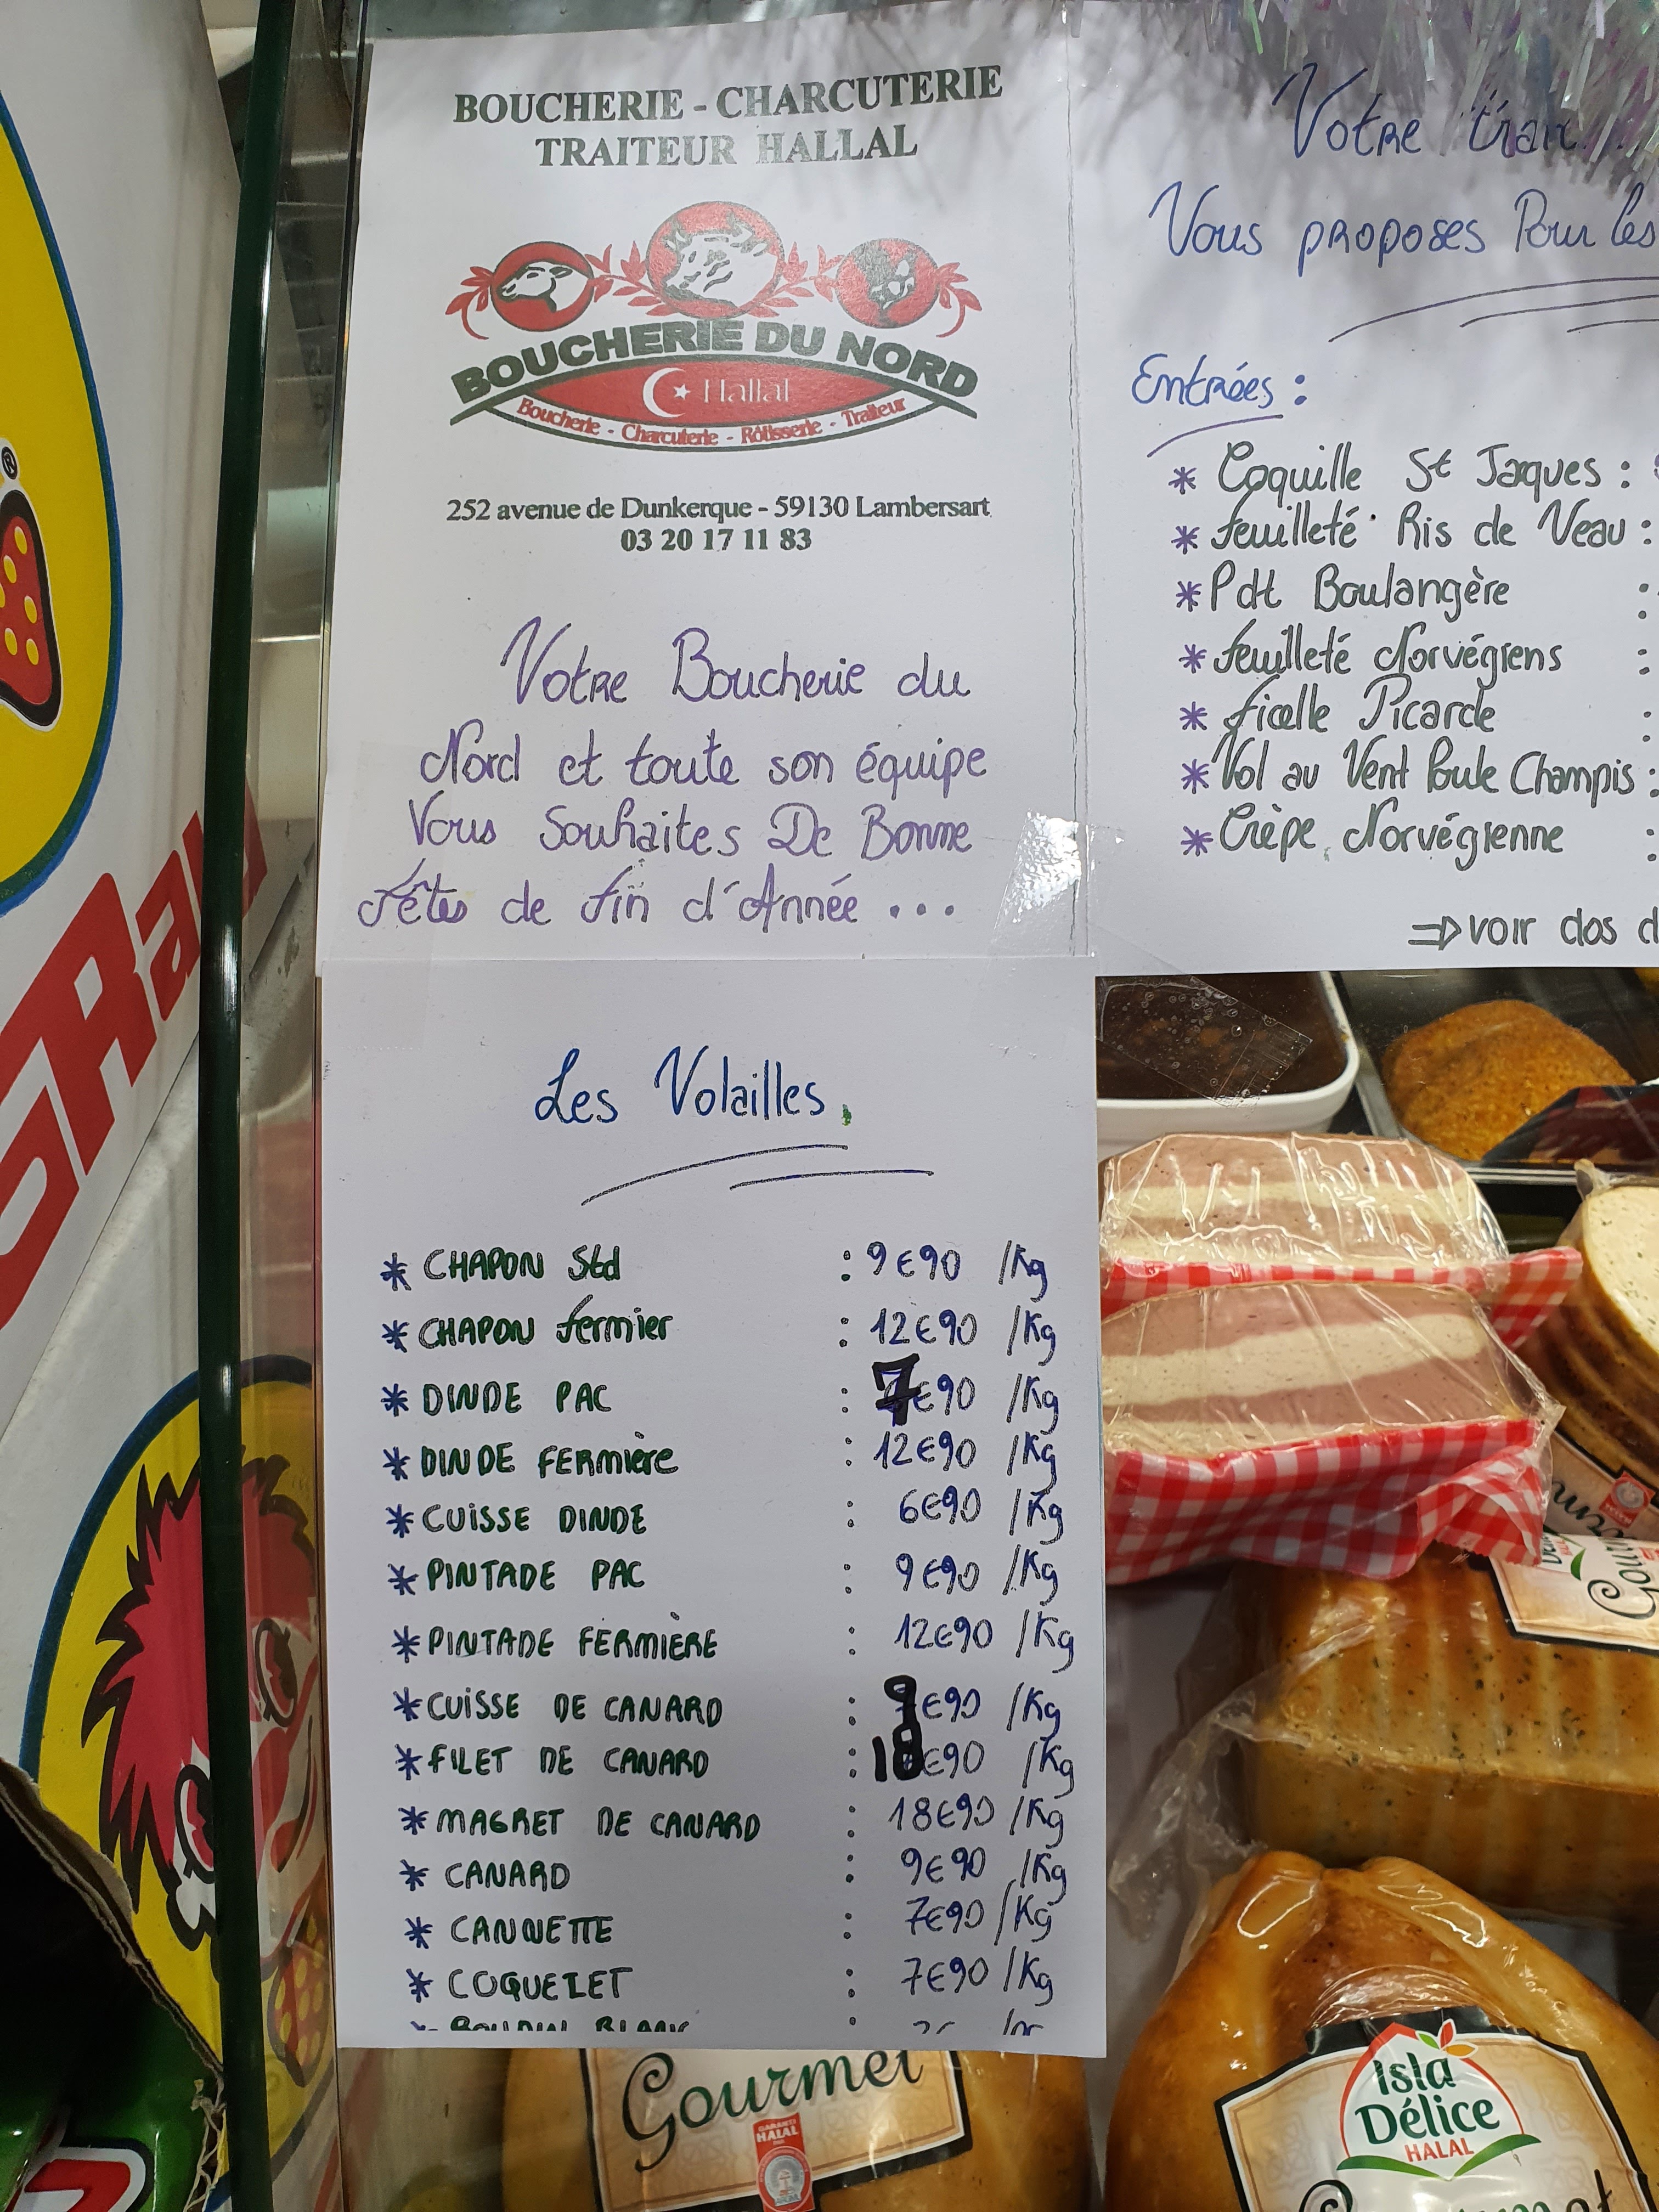 BOUCHERIE - CHARCUTERIE
TRAITEUR HALLAL
BOUCHERIE DU NORD
Hallal
Boucherie - Charcuterie - Rôtisserie - Traiteur
252 avenue de Dunkerque - 59130 Lambersart
03 20 17 11 83
Votre Boucherie du
Nord et toute son équipe
Vous Souhaites De Bonne
Fêtes de fin d'Année ...
Votre
Vous proposes Pour les
Entrées :
* Coquille St Jaques :
* feuilleté Ris de Veau :
* Pdt Boulangère :
* feuilleté Norvégiens :
* ficelle Picarde :
* Vol au Vent Poule Champis :
* Crèpe Norvégienne :
⇒ voir dos
Les Volailles
* CHAPON Std : 9€90 /Kg
* CHAPON fermier : 12€90 /Kg
* DINDE PAC : 7€90 /Kg
* DINDE FERmière : 12€90 /Kg
* CUISSE DINDE : 6€90 /Kg
* PINTADE PAC : 9€90 /Kg
* PINTADE FERMIÈRE : 12€90 /Kg
* CUISSE DE CANARD : 9€90 /Kg
* FILET DE CANARD : 18€90 /Kg
* MAGRET DE CANARD : 18€90 /Kg
* CANARD : 9€90 /Kg
* CANNETTE : 7€90 /Kg
* COQUELET : 7€90 /Kg
* BOUDIN BLANC :
Gourmet
GARANTI
HALAL
Isla
Délice
HALAL